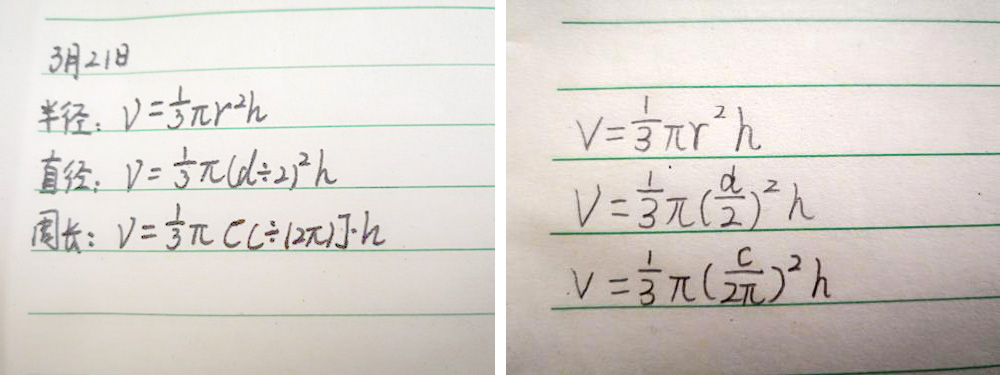 3月21日
半径: V=⅓πr²h
直径: V=⅓π(d÷2)²h
周长: V=⅓π[C÷(2π)]·h
V=⅓πr²h
V=⅓π(d/2)²h
V=⅓π(c/2π)²h